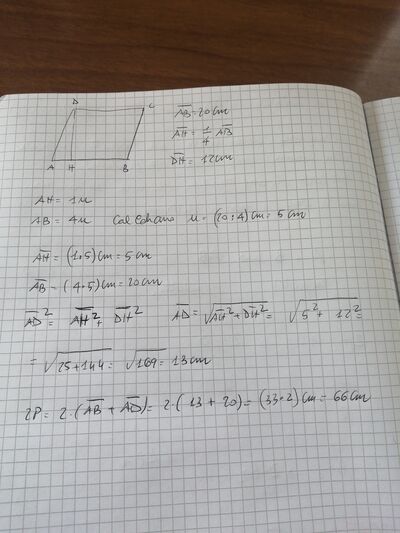 D
C
A H B
A̅B̅ = 20 cm
A̅H̅ = 1/4 A̅B̅
D̅H̅ = 12 cm
AH = 1u
AB = 4u Calcoliamo u = (20:4) cm = 5 cm
A̅H̅ = (1·5) cm = 5 cm
A̅B̅ = (4·5) cm = 20 cm
A̅D̅² = A̅H̅² + D̅H̅² A̅D̅ = √A̅H̅² + D̅H̅² = √5² + 12² =
= √25+144 = √169 = 13 cm
2P = 2·(A̅B̅ + A̅D̅) = 2·(13 + 20) = (33·2) cm = 66 cm